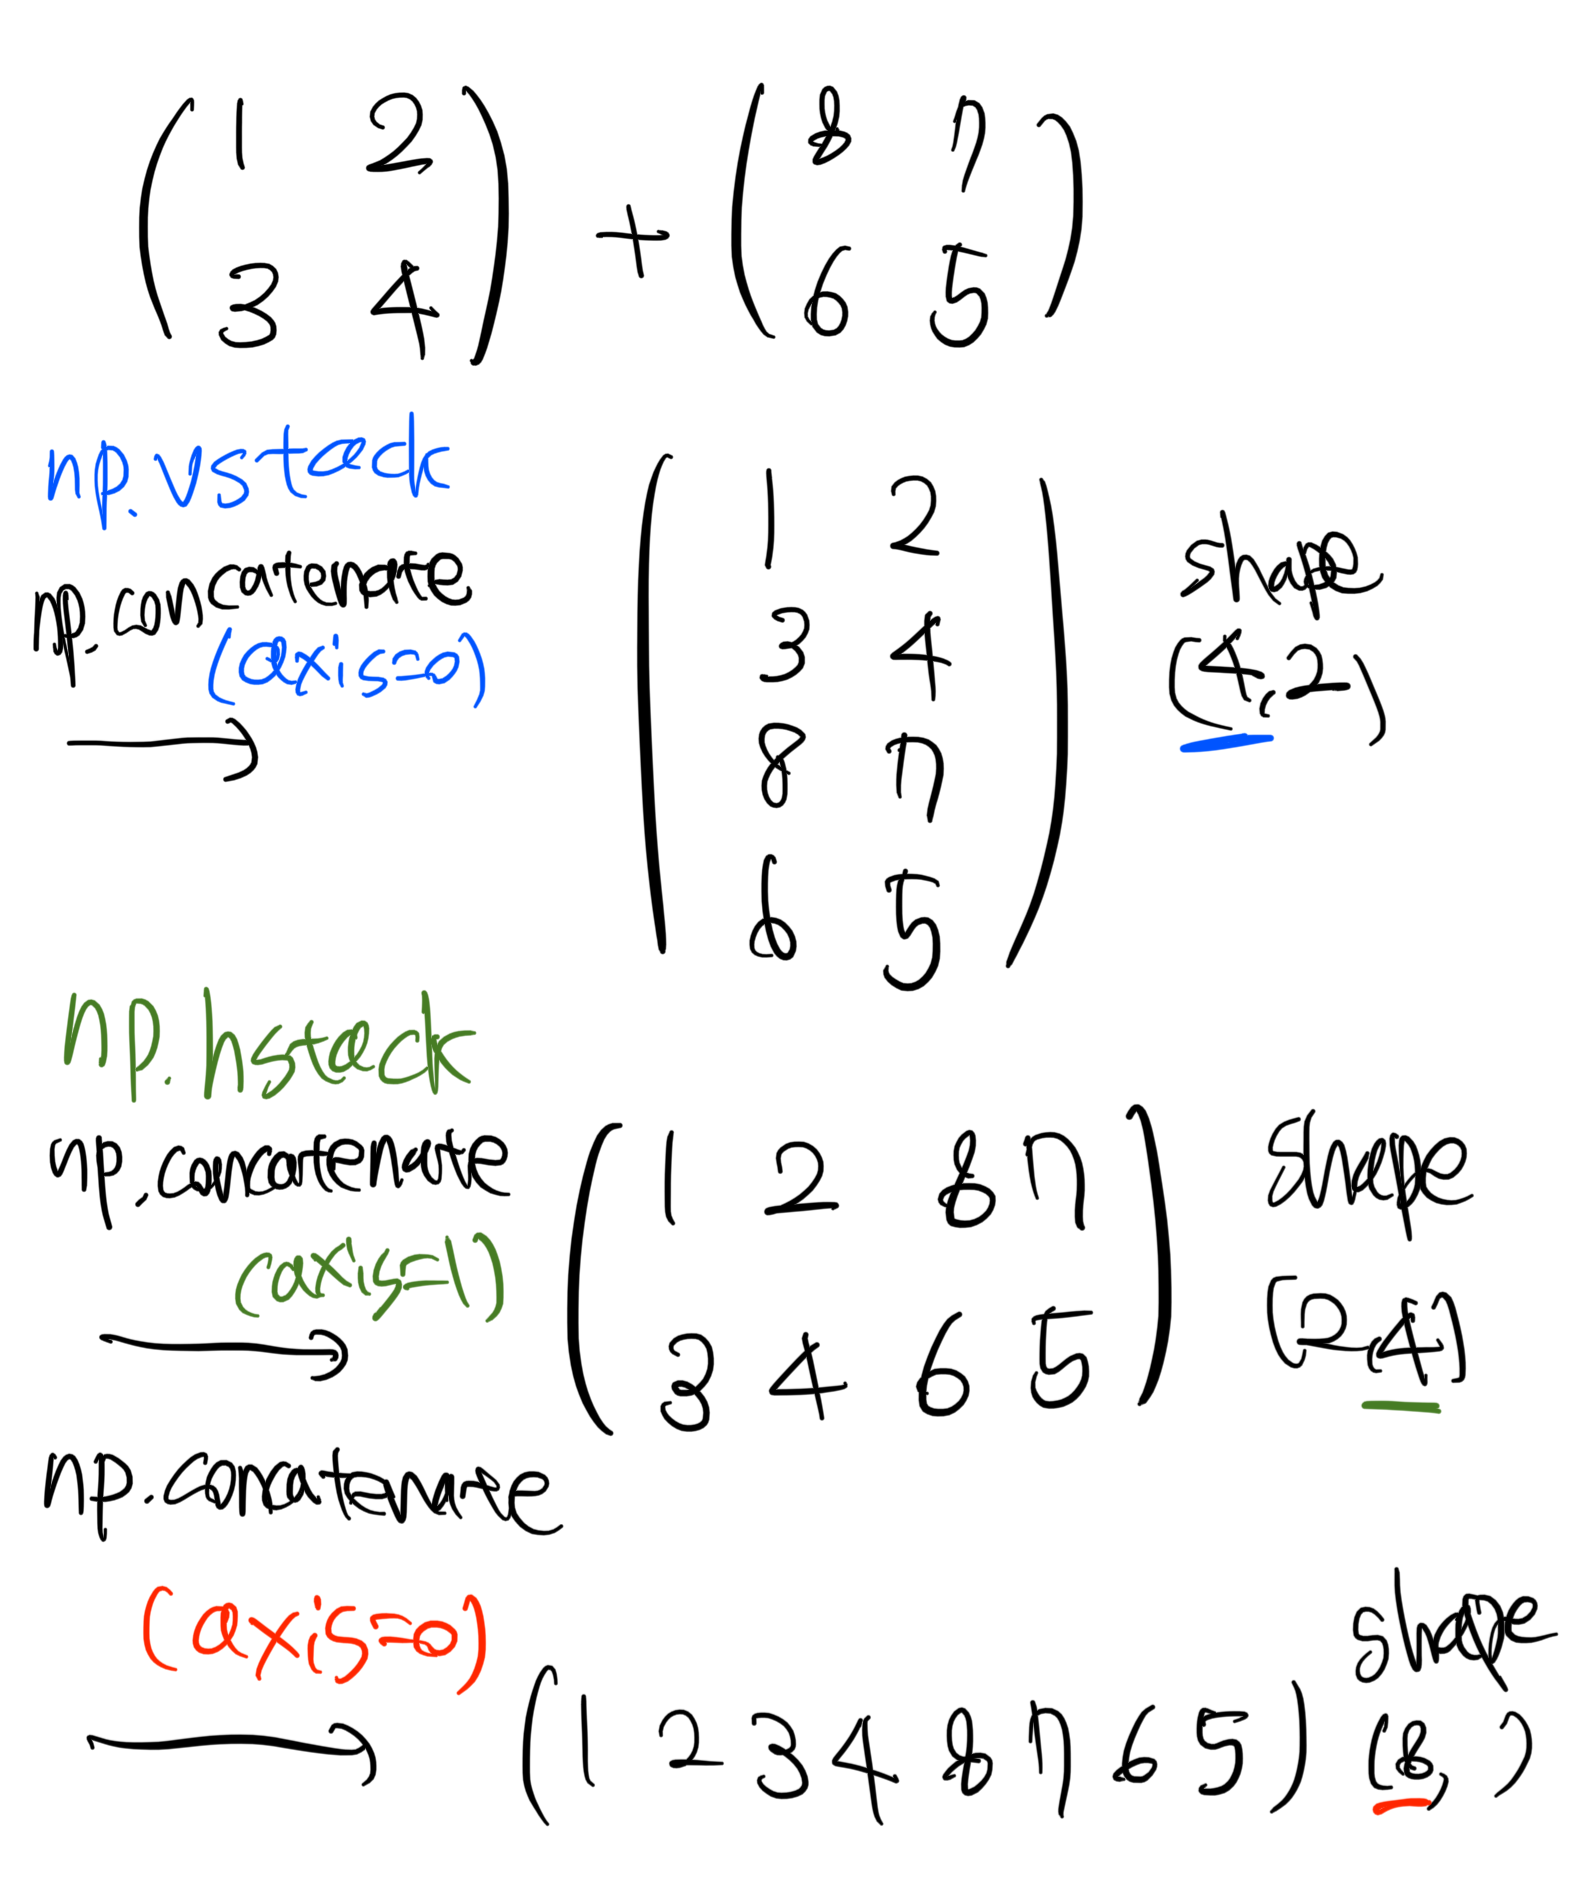 1 2 8 7
+
3 4 6 5
np.vstack
np.concatenate
(axis=0)
1 2
3 4
8 7
6 5
shape
(4,2)
np.hstack
np.concatenate
(axis=1)
1 2 8 7
3 4 6 5
shape
(2,4)
np.concatenate
(axis=0)
(1 2 3 4 8 7 6 5)
shape
(8, )